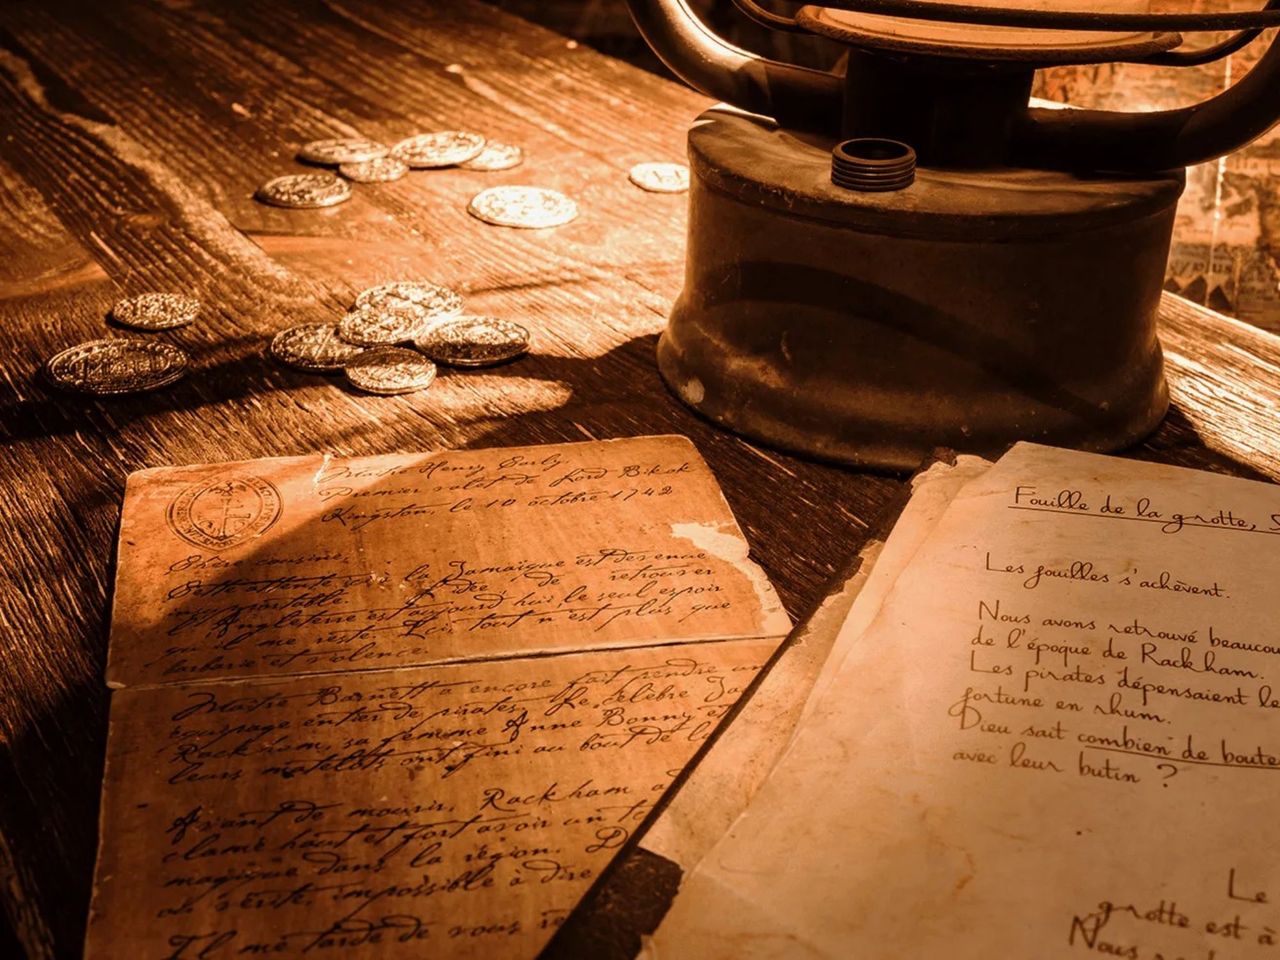 Maître Henry Early
Premier valet de Lord Bikok
Kingston, le 10 octobre 1742
Chère cousine,
Cette attente à la Jamaïque est devenue
insupportable. L'idée de retrouver
l'Angleterre est aujourd'hui le seul espoir
qu'il me reste. Ici, tout n'est plus que
barbarie et violence.
Maître Barnett a encore fait pendre un
équipage entier de pirates. Le célèbre
Rackham, sa femme Anne Bonny et
leurs matelots ont fini au bout de
Avant de mourir, Rackham a
clamé haut et fort avoir un
magique dans la région.
ou vérité, impossible à dire
Il me tarde de vous
Fouille de la grotte, S
Les fouilles s'achèvent.
Nous avons retrouvé beaucou
de l'époque de Rackham.
Les pirates dépensaient le
fortune en rhum.
Dieu sait combien de boute
avec leur butin ?
Le
grotte est à
Nous